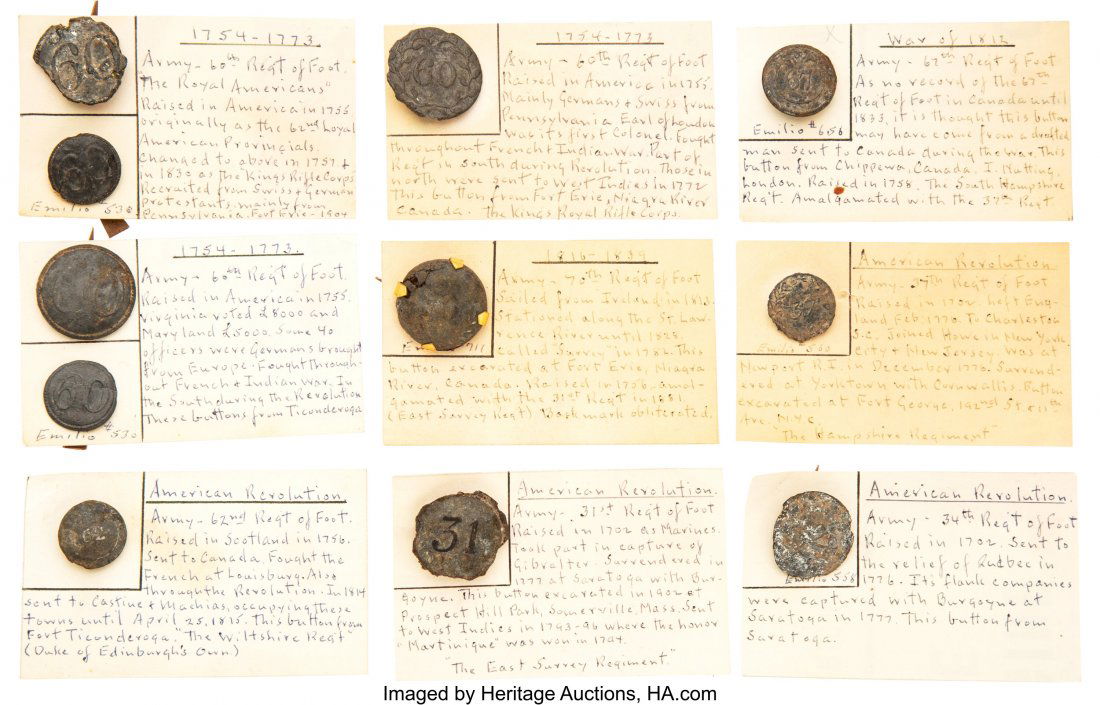 60
1754-1773.
Army - 60th Reg't of Foot.
"The Royal Americans"
Raised in America in 1755
originally as the 62nd Loyal
American Provincials.
Changed to above in 1757 &
in 1830 as the Kings Rifle Corps
Recruited from Swiss & German
protestants, mainly from
Pennsylvania. Fort Erie - 1904
60
Emilio #530
1754-1773
Army - 60th Reg't of Foot
Raised in America in 1755.
Mainly Germans & Swiss from
Pennsylvania Earl of Loudon
was its first Colonel. Fought
throughout French & Indian War. Part of
Reg't in South during Revolution. Those in
north were sent to West Indies in 1772
This button from Fort Erie, Niagra River
Canada. The Kings Royal Rifle Corps.
60
War of 1812
Army - 67th Reg't of Foot
As no record of the 67th
Reg't of Foot in Canada until
1833, it is thought this button
may have come from a drafted
man sent to Canada during the war. This
button from Chippewa, Canada. I. Nutting,
London. Raised in 1758. The South Hampshire
Reg't. Amalgamated with the 37th Reg't
67
Emilio #656
1754-1773.
Army - 60th Reg't of Foot.
Raised in America in 1755.
Virginia voted £8000 and
Maryland £5000. Some 40
officers were Germans brought
from Europe. Fought through-
out French & Indian War. In
the South during the Revolution
These buttons from Ticonderoga
60
60
Emilio #530
1816-1839
Army - 70th Reg't of Foot
Sailed from Ireland in 1813.
Stationed along the St. Law-
rence River until 1825.
Called "Surrey" in 1782. This
button excavated at Fort Erie, Niagra
River, Canada. Raised in 1756. amal-
gamated with the 31st Reg't in 1881
(East Surrey Reg't) Back mark obliterated.
American Revolution
Army - 37th Reg't of Foot
Raised in 1702. Left Eng-
land Feb. 1776. To Charleston
S.C. Joined Howe in New York
City & New Jersey. Was at
Newport R.I. in December 1776. Surrend-
ered at Yorktown with Cornwallis. Button
excavated at Fort George, 192nd St. & 11th
Ave. N.Y.C.
"The Hampshire Regiment"
American Revolution.
Army - 62nd Reg't of Foot.
Raised in Scotland in 1756.
Sent to Canada. Fought the
French at Louisburg. Also
through the Revolution. In 1814
sent to Castine & Machias, occupying these
towns until April 25, 1815. This button from
Fort Ticonderoga. "The Wiltshire Reg't"
(Duke of Edinburgh's Own)
62
American Revolution.
Army - 31st Reg't of Foot
Raised in 1702 as Marines.
Took part in capture of
Gibralter. Surrendered in
1777 at Saratoga with Bur-
goyne. This button excavated in 1902 at
Prospect Hill Park, Somerville, Mass. Sent
to West Indies in 1793-96 where the honor
"Martinique" was won in 1794.
"The East Surrey Regiment."
31
American Revolution.
Army - 34th Reg't of Foot
Raised in 1702. Sent to
the relief of Quebec in
1776. Its flank companies
were captured with Burgoyne at
Saratoga in 1777. This button from
Saratoga.
Emilio 558
Imaged by Heritage Auctions, HA.com